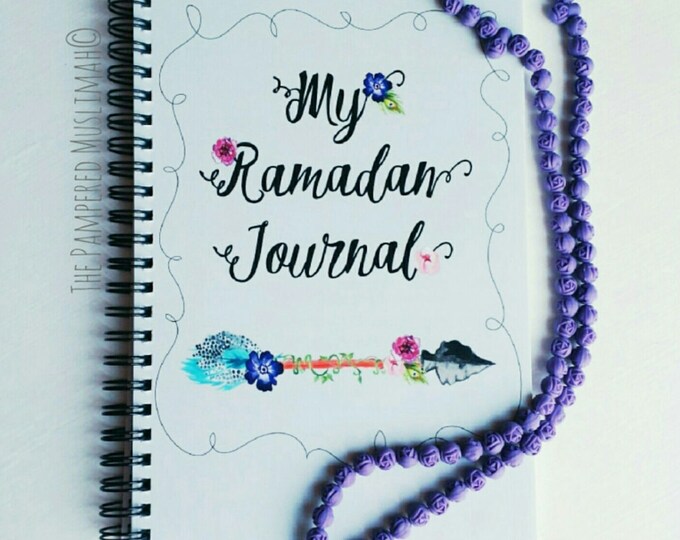 My
Ramadan
Journal
The Pampered Muslimah©